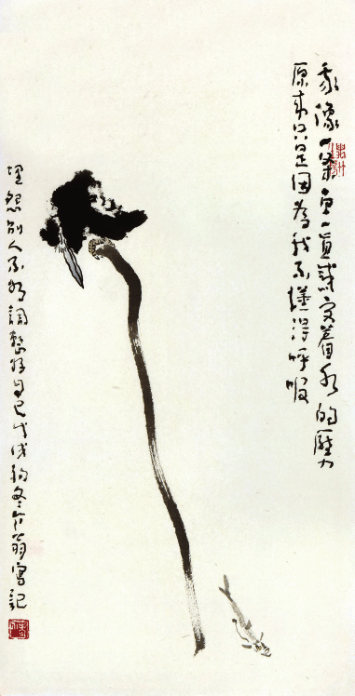 我像一条鱼一直感受着水的压力
原来只是因为我不懂得呼吸
埋怨别人不如调整好自己戊戌初冬介翁写记